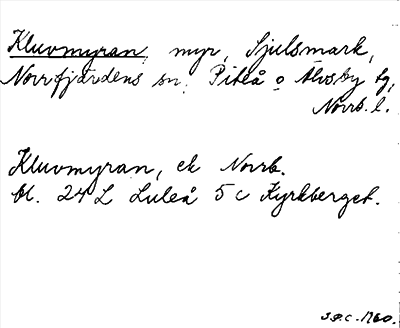 Kluvmyran, myr, Sjulsmark,
Norrfjärdens sn. Piteå o Älvsby tg,
Norrb. l.
Kluvmyran, ek Norrb.
bl. 24 L Luleå 5 c Kyrkberget.
J.P.C. 1960.